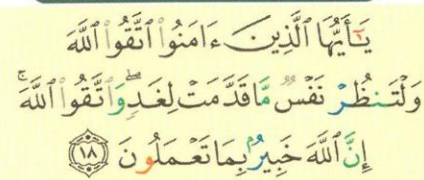 يَـٰٓأَيُّهَا ٱلَّذِينَ ءَامَنُوا۟ ٱتَّقُوا۟ ٱللَّهَ
وَلْتَنظُرْ نَفْسٌ مَّا قَدَّمَتْ لِغَدٍ ۖ وَٱتَّقُوا۟ ٱللَّهَ ۚ
إِنَّ ٱللَّهَ خَبِيرٌۢ بِمَا تَعْمَلُونَ ﴿١٨﴾